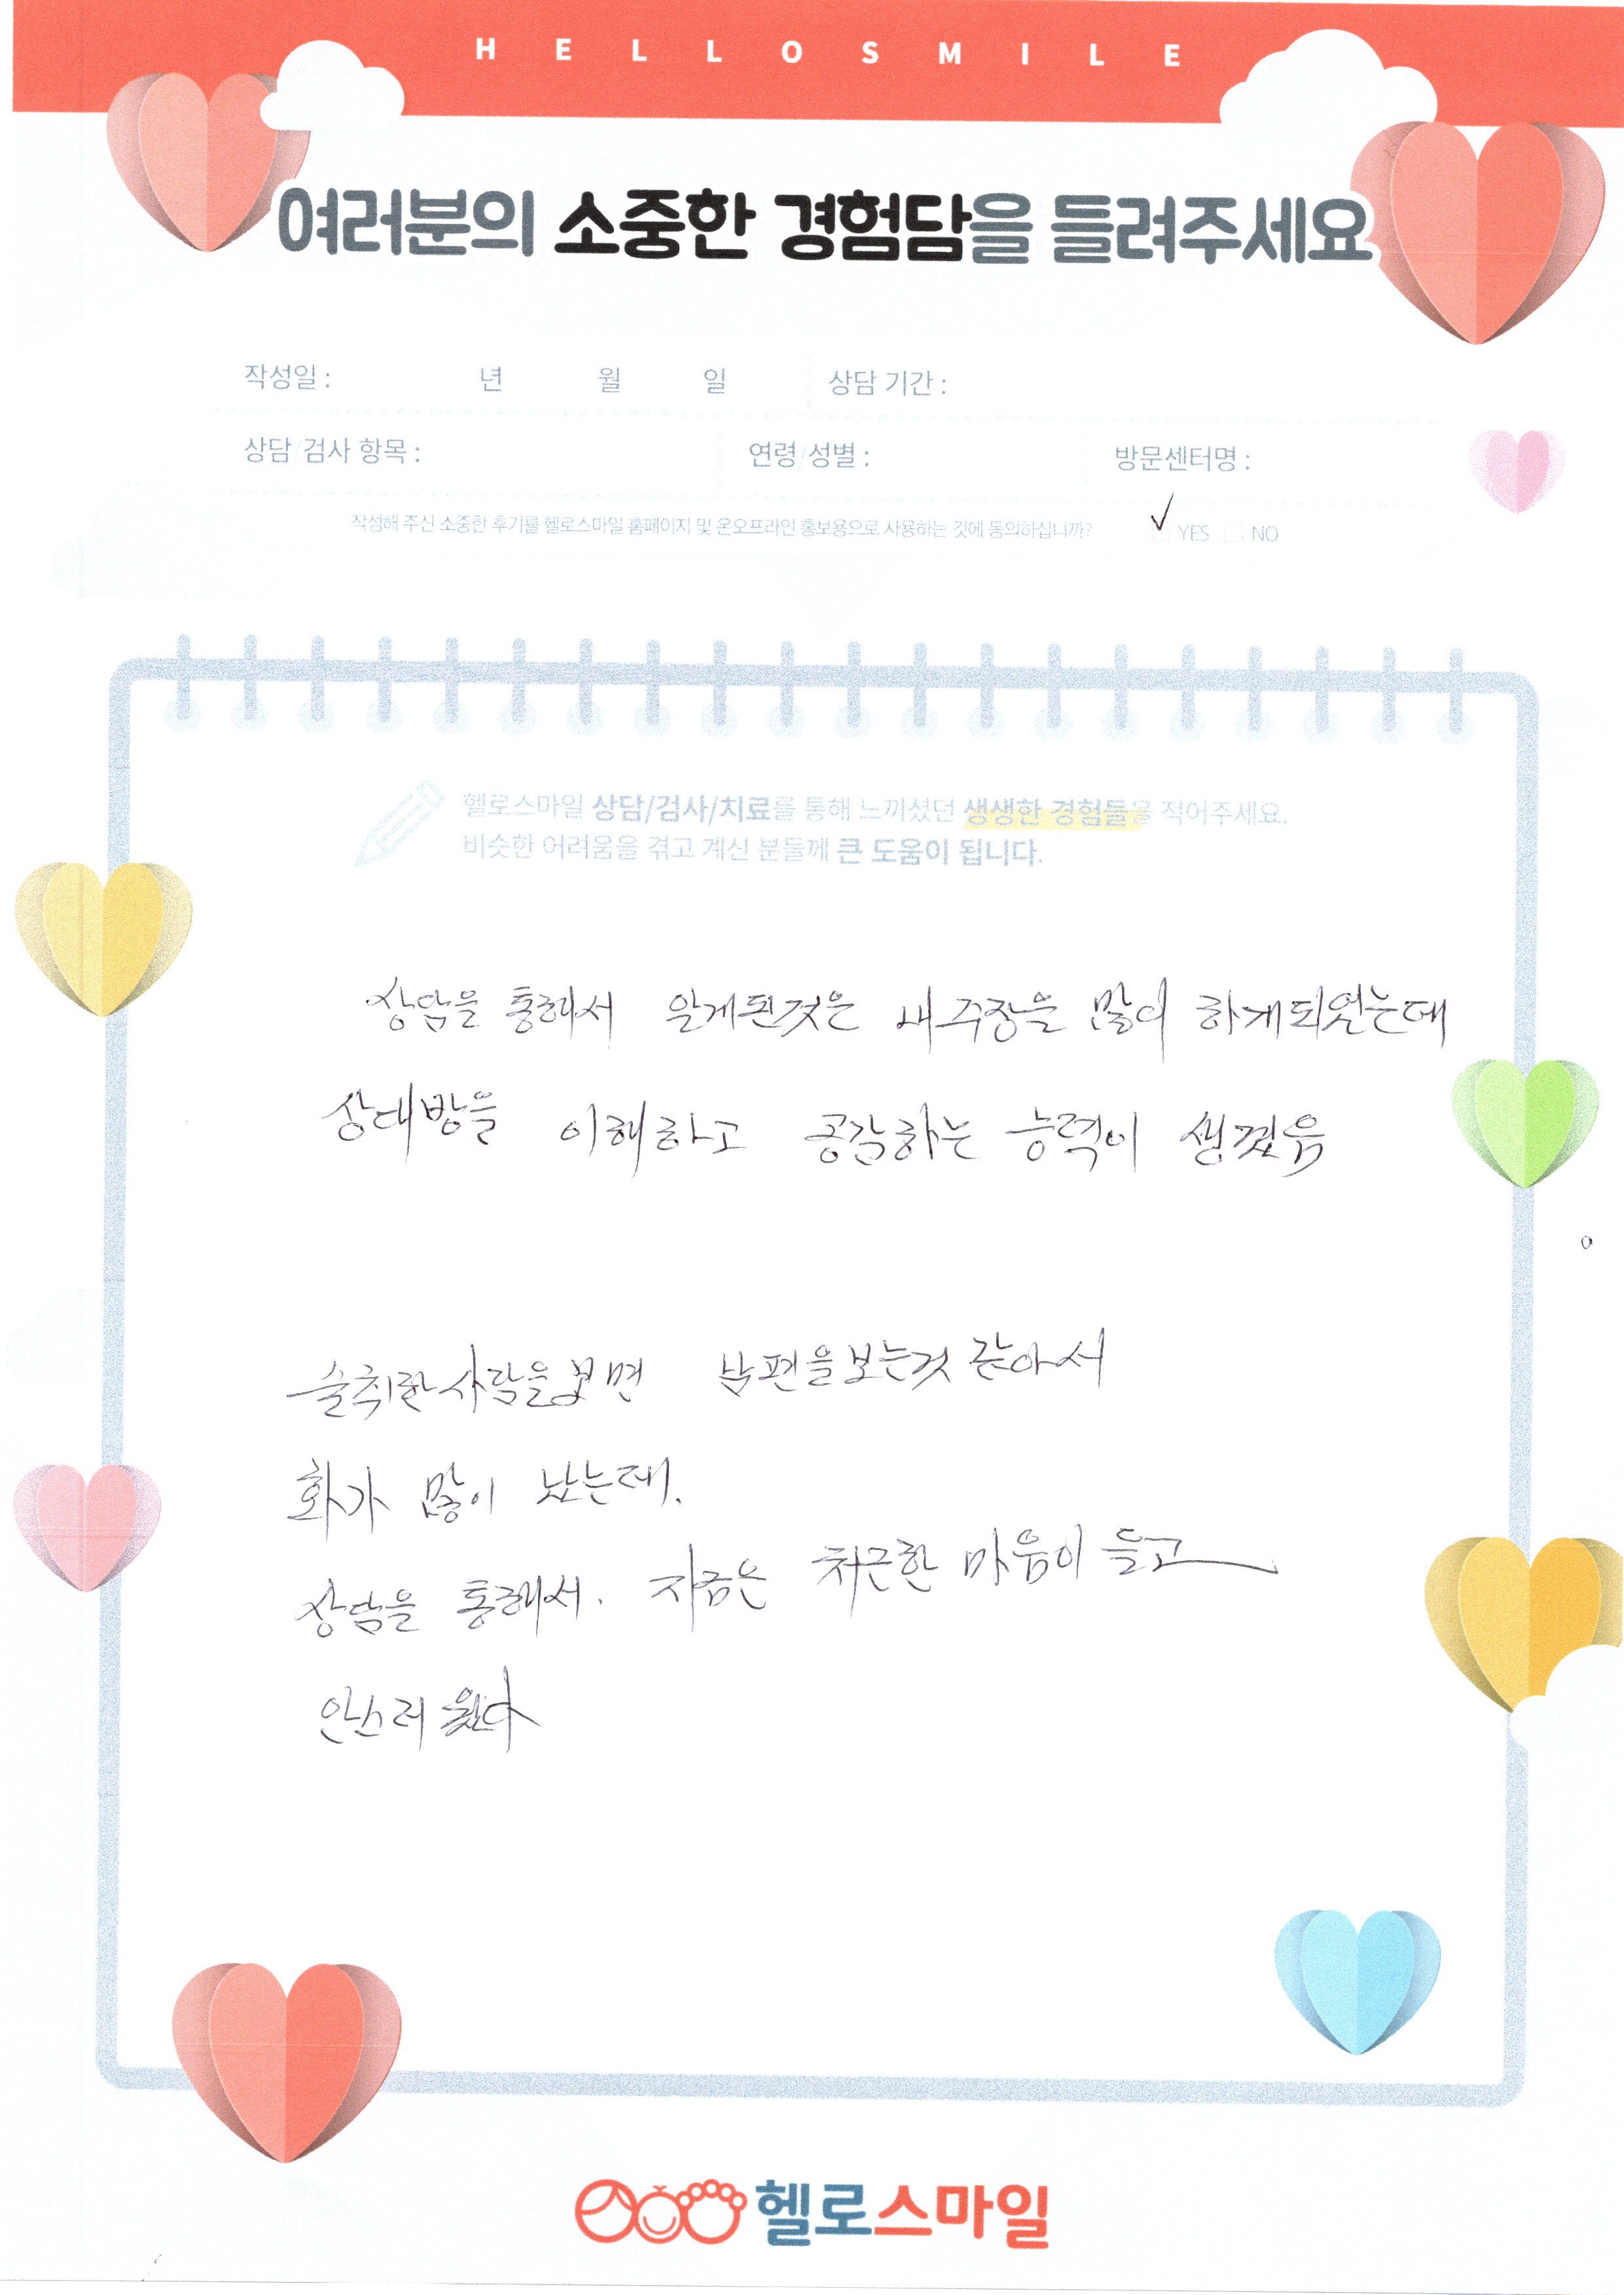 HELLOSMILE
여러분의 소중한 경험담을 들려주세요
작성일 : 년 월 일 상담 기간 :
상담/검사 항목 : 연령/성별 : 방문센터명 :
작성해 주신 소중한 후기를 헬로스마일 홈페이지 및 온오프라인 홍보용으로 사용하는 것에 동의하십니까? ✓ YES NO
헬로스마일 상담/검사/치료를 통해 느끼셨던 생생한 경험들을 적어주세요.
비슷한 어려움을 겪고 계신 분들께 큰 도움이 됩니다.
상담을 통해서 알게된것은 내주장을 많이 하게되었는데
상대방을 이해하고 공감하는 능력이 생겼음
술취한사람을보면 남편을보는것 같아서
화가 많이 났는데.
상담을 통해서. 지금은 측은한 마음이 들고
안스러웠다
헬로스마일